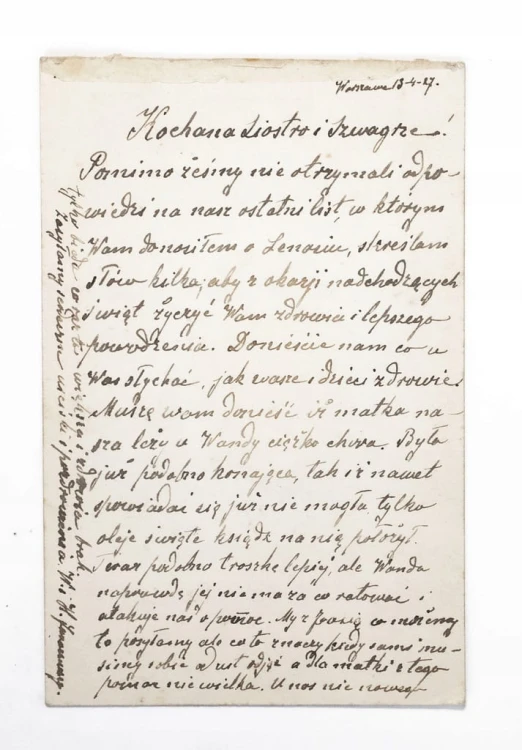 Warszawa 13-4-27.
Kochana Siostro i Szwagrze!
Pomimo żeśmy nie otrzymali odpo-
wiedzi na nasz ostatni list, w którym
Wam donosiłem o Lenosiu, skreślam
słów kilka, aby z okazji nadchodzących
świąt życzyć Wam zdrowia i lepszego
powodzenia. Donieście nam co u
Was słychać, jak wasze i dzieci zdrowie.
Muszę wam donieść iż matka na-
sza leży u Wandy ciężko chora. Była
już podobno konająca, tak iż nawet
spowiadać się już nie mogła, tylko
oleje święte ksiądz na nią położył.
Teraz podobno troszkę lepiej, ale Wanda
naprawdę jej nie ma za co ratować i
atakuje nas o pomoc. My z Franią co możemy
to posyłamy ale co to znaczy kiedy sami mu-
simy sobie od ust odjąć a dla matki z tego
pomoc nie wielka. U nas nic nowego
tylko bieda coraz to większa i zdrowia brak
Zasyłamy serdeczne uściski i pozdrowienia. W. i F.